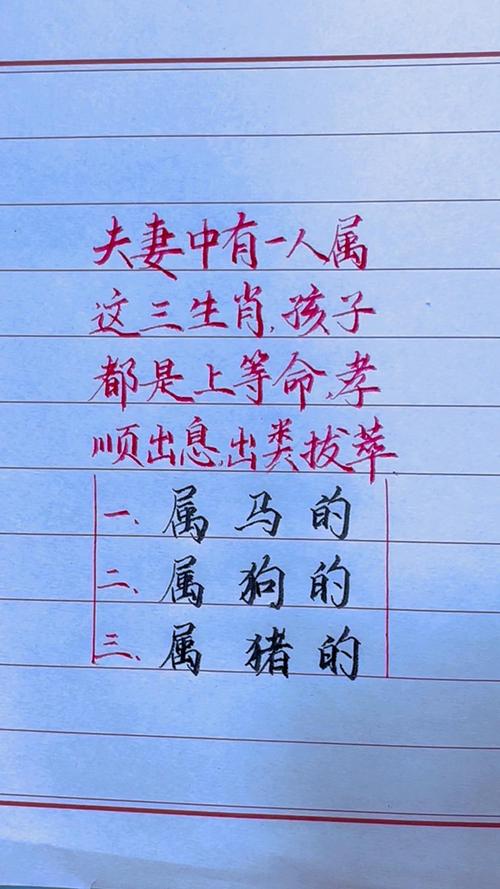 夫妻中有一人属
这三生肖,孩子
都是上等命,孝
顺出息,出类拔萃
一、属马的
二、属狗的
三、属猪的